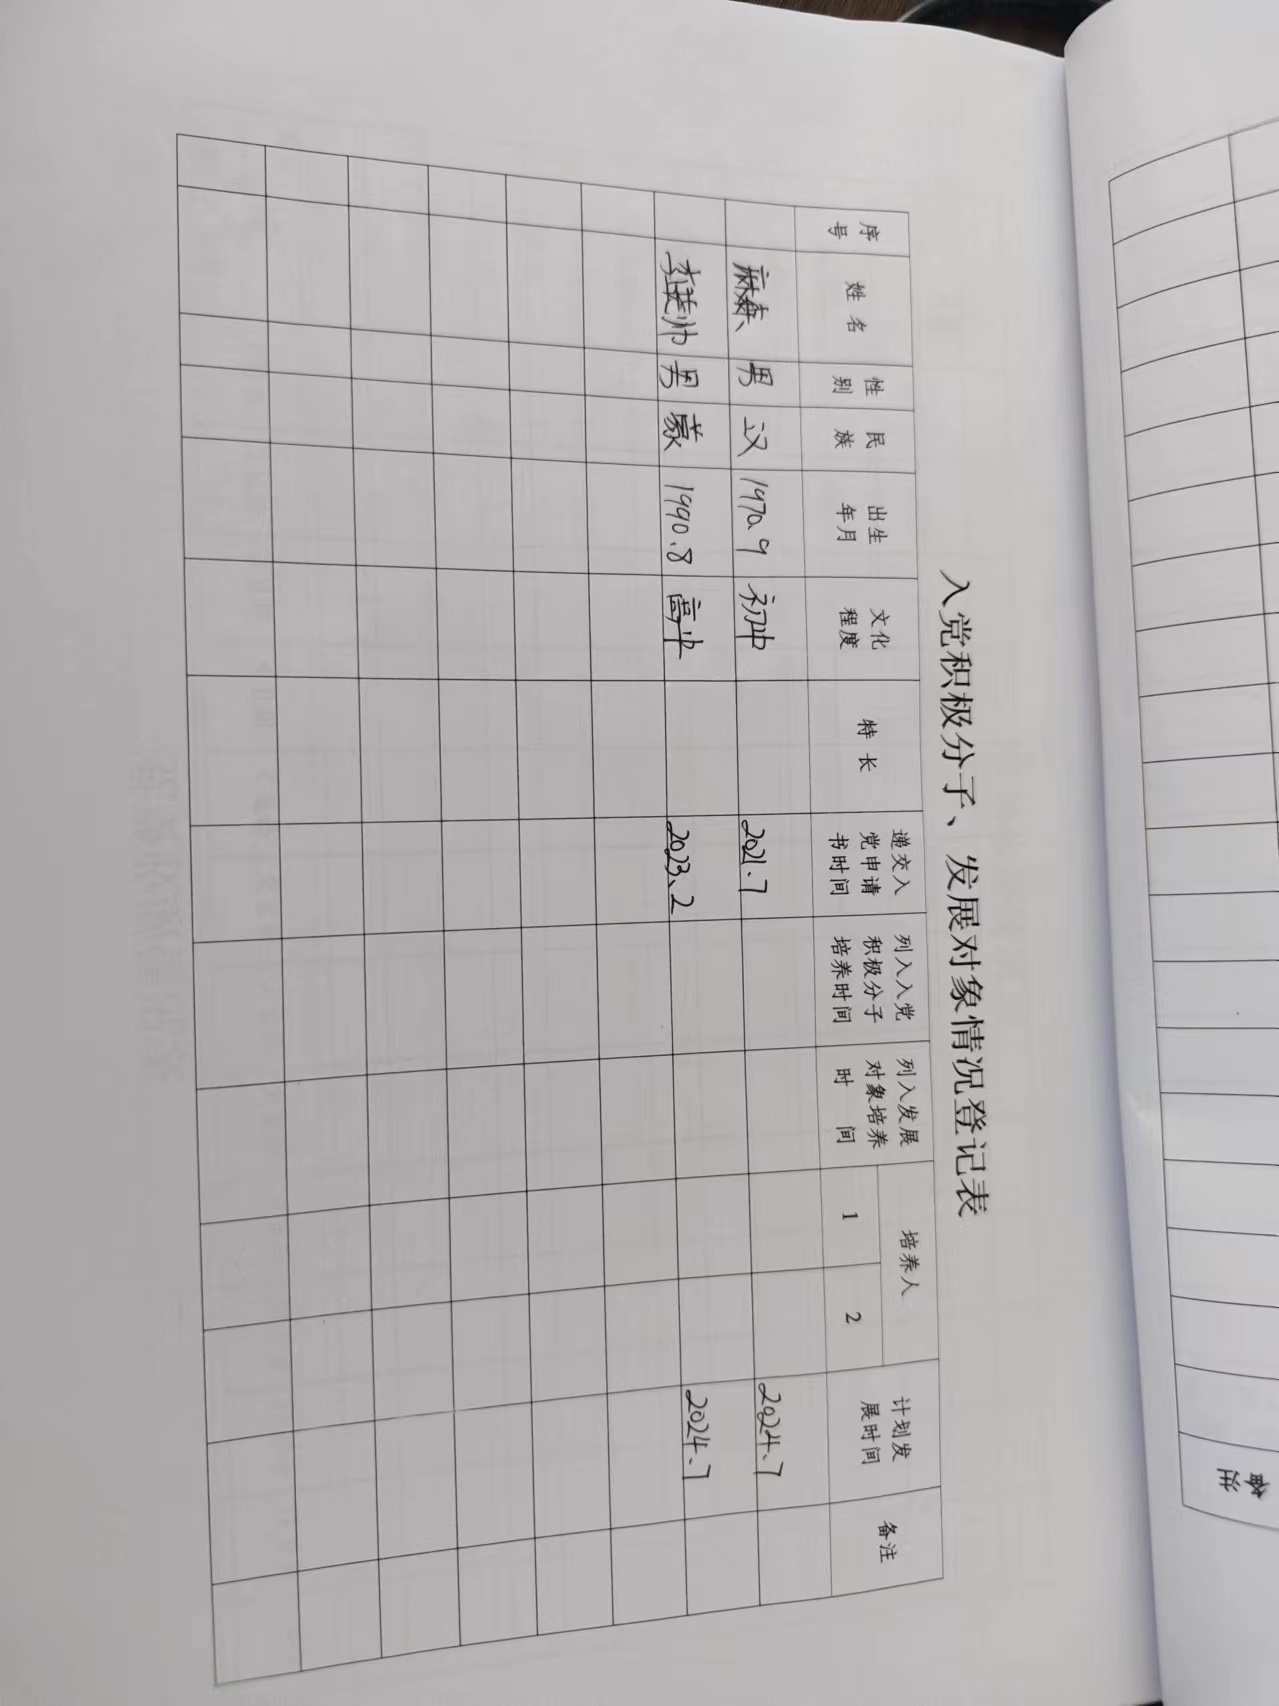 入党积极分子、发展对象情况登记表
序号 姓名 性别 民族 出生年月 文化程度 特长 递交入党申请书时间 列入入党积极分子培养时间 列入发展对象培养时间 培养人 1 2 计划发展时间 备注
麻森 男 汉 1970.9 初中 2021.7 2024.7
李英帅 男 蒙 1990.8 高中 2023.2 2024.7
备注